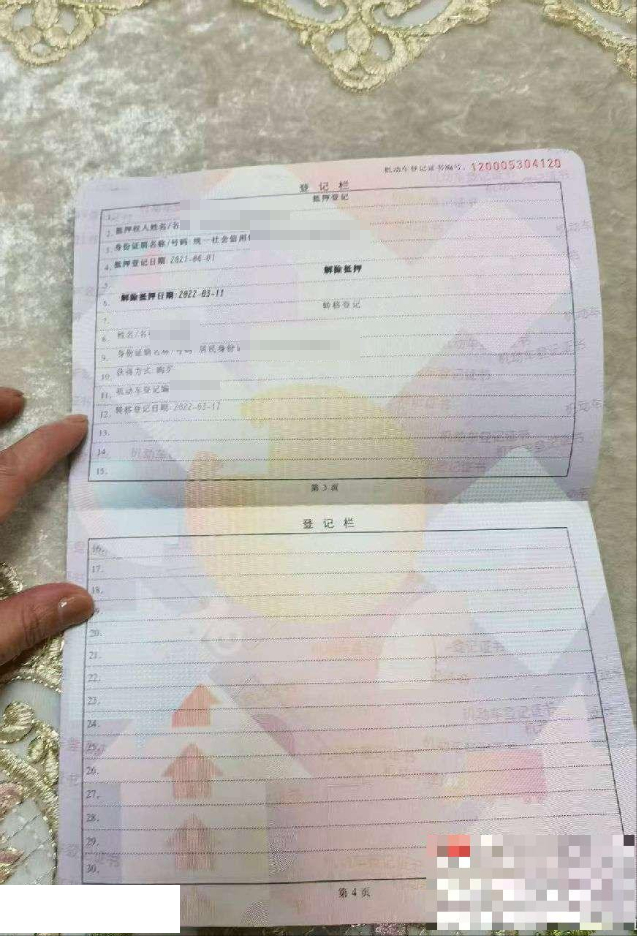 机动车登记证书编号：120005304120
登 记 栏
1. 抵押登记
2. 抵押权人姓名/名
3. 身份证明名称/号码 统一社会信用
4. 抵押登记日期
5. 解除抵押
6. 解除抵押日期:2022-03-11
7. 转移登记
8. 姓名/名
9. 身份证明名称/号码 居民身份
10. 获得方式 购买
11. 机动车登记编
12. 转移登记日期
13.
14.
15.
第 3 页
登 记 栏
16.
17.
18.
20.
21.
22.
23.
24.
25.
26.
27.
28.
29.
30.
第 4 页